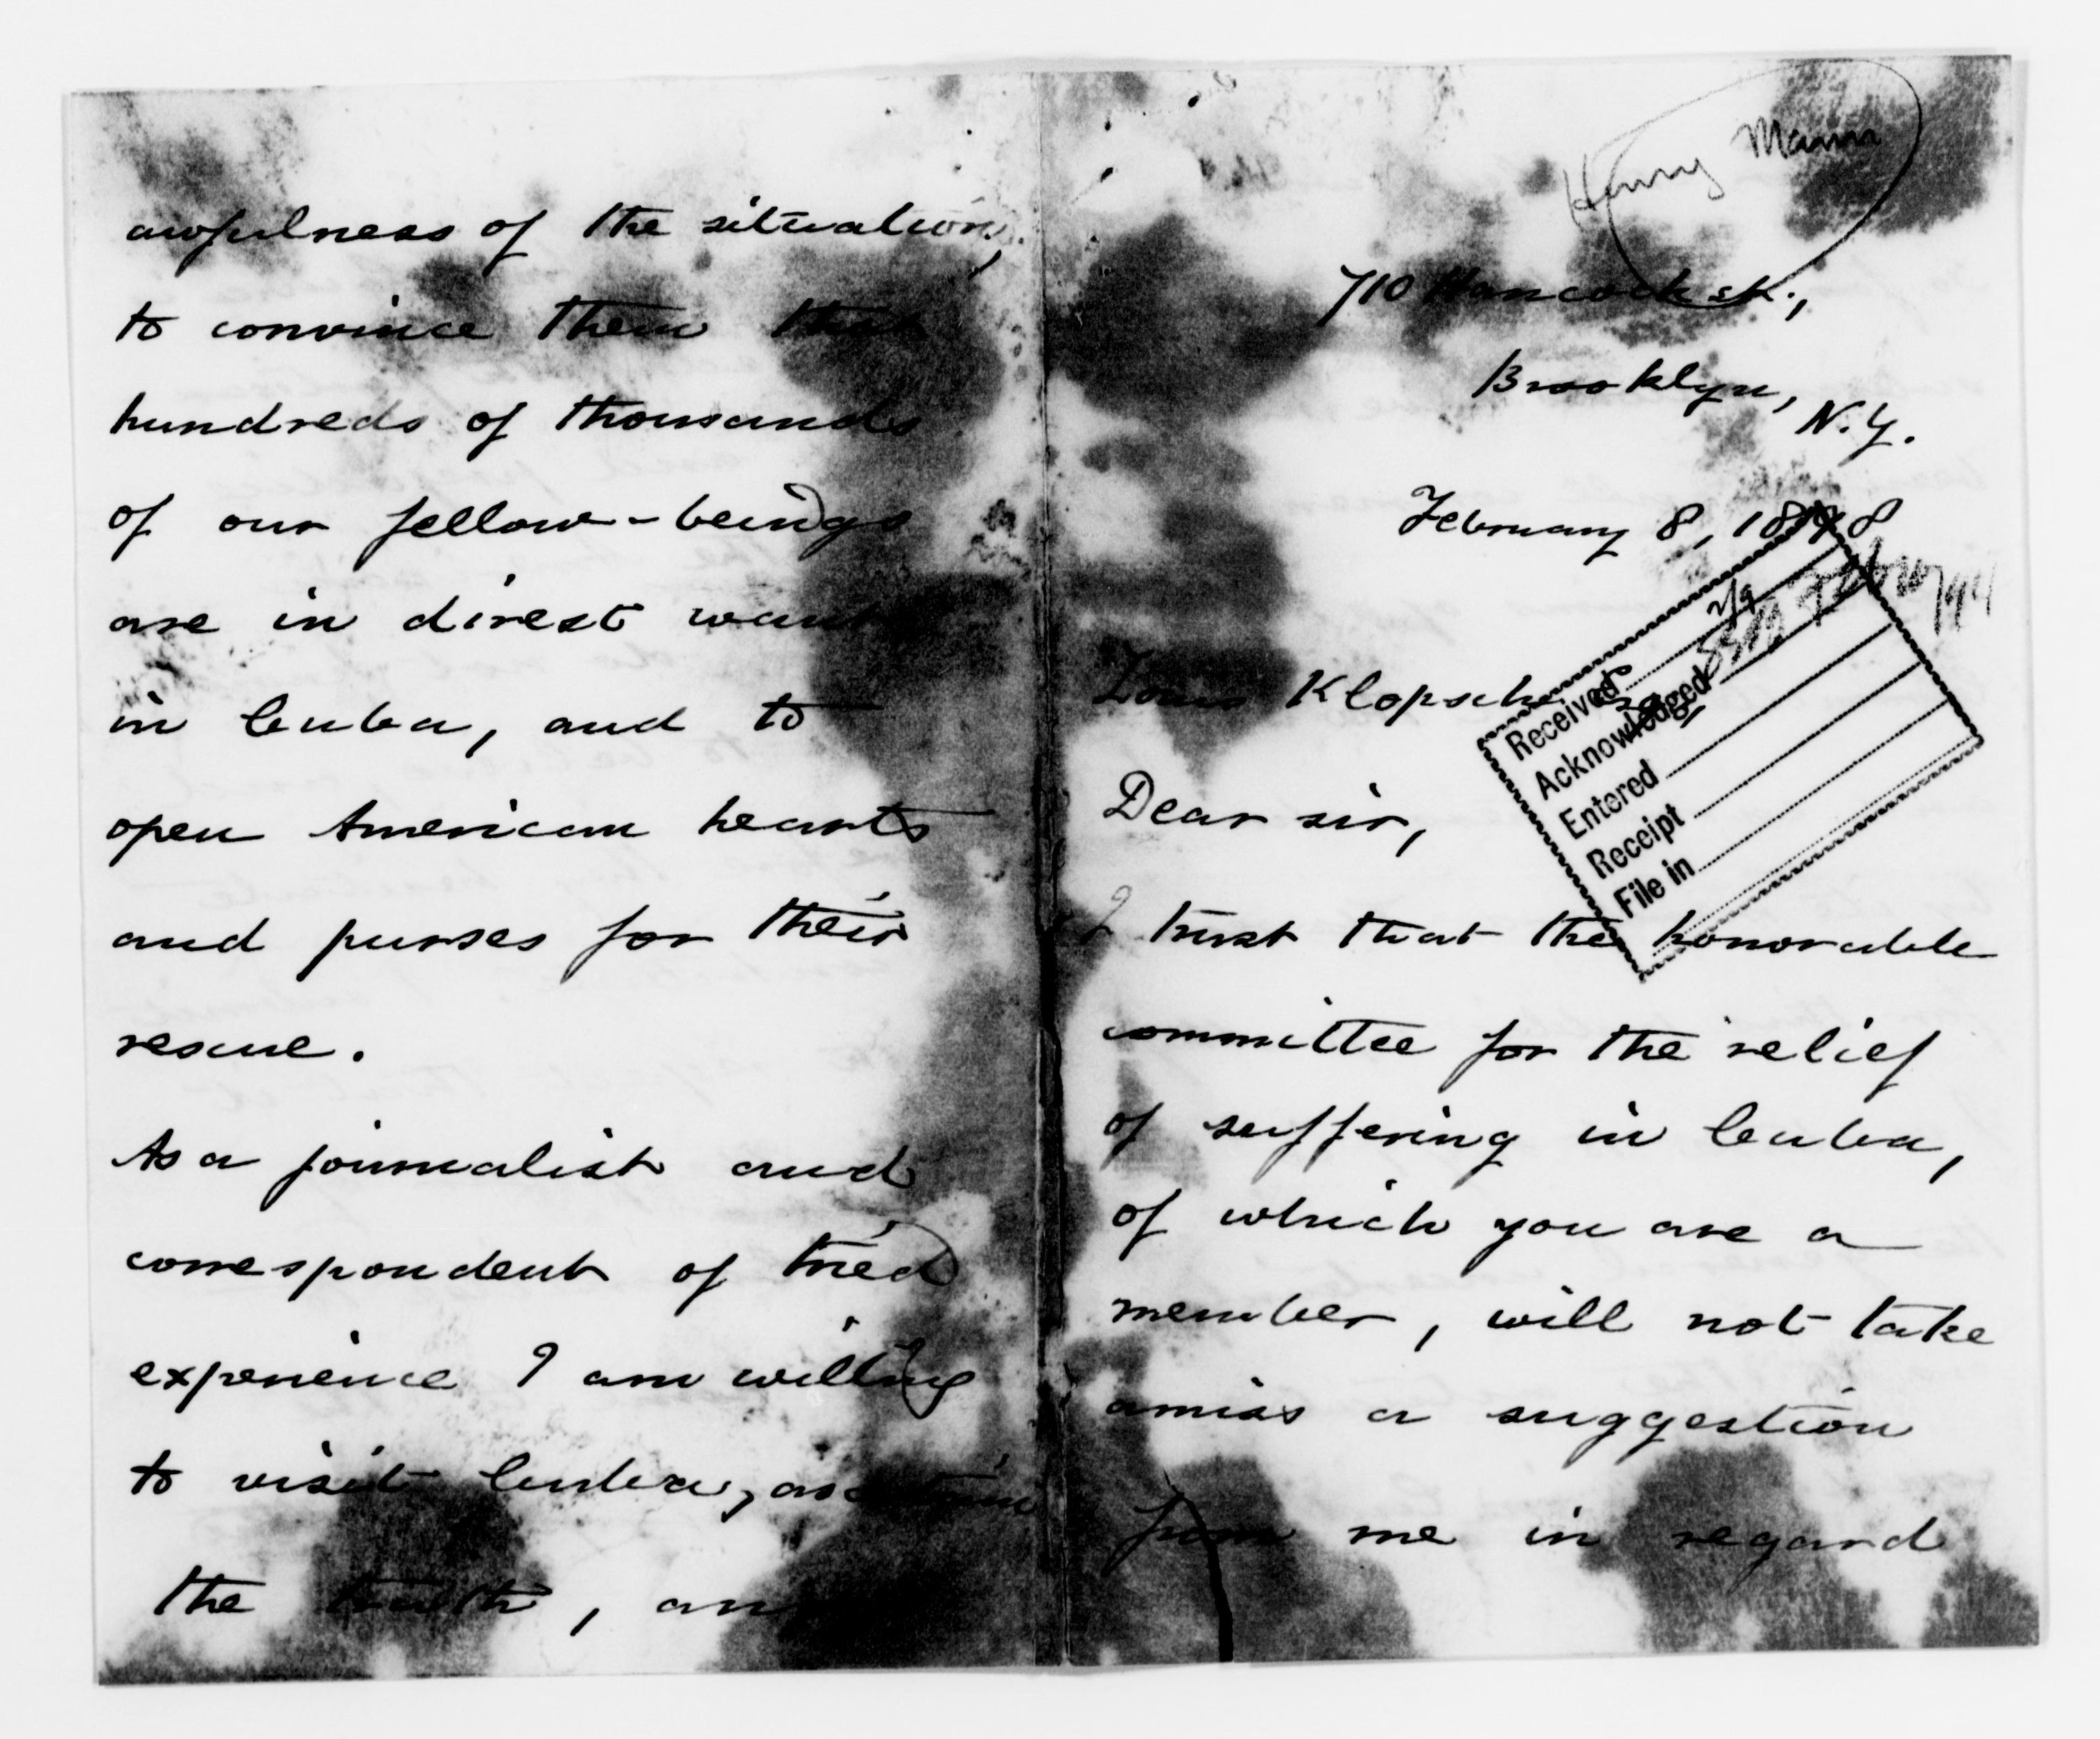 awfulness of the situation,
to convince them that
hundreds of thousands
of our fellow-beings
are in direst want
in Cuba, and to
open American hearts
and purses for their
rescue.
As a journalist and
correspondent of tried
experience I am willing
to visit Cuba, ascertain
the truth, and
Henry Mann
710 Hancock st.,
Brooklyn,
N.Y.
February 8, 1898
Received 2/9
Acknowledged
Entered
Receipt
File in
Louis Klopsch, Esq.,
Dear sir,
I trust that the honorable
committee for the relief
of suffering in Cuba,
of which you are a
member, will not take
amiss a suggestion
from me in regard